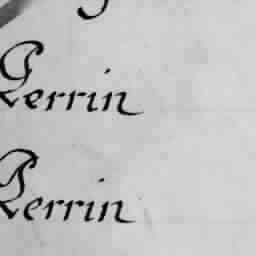 Perrin
Perrin